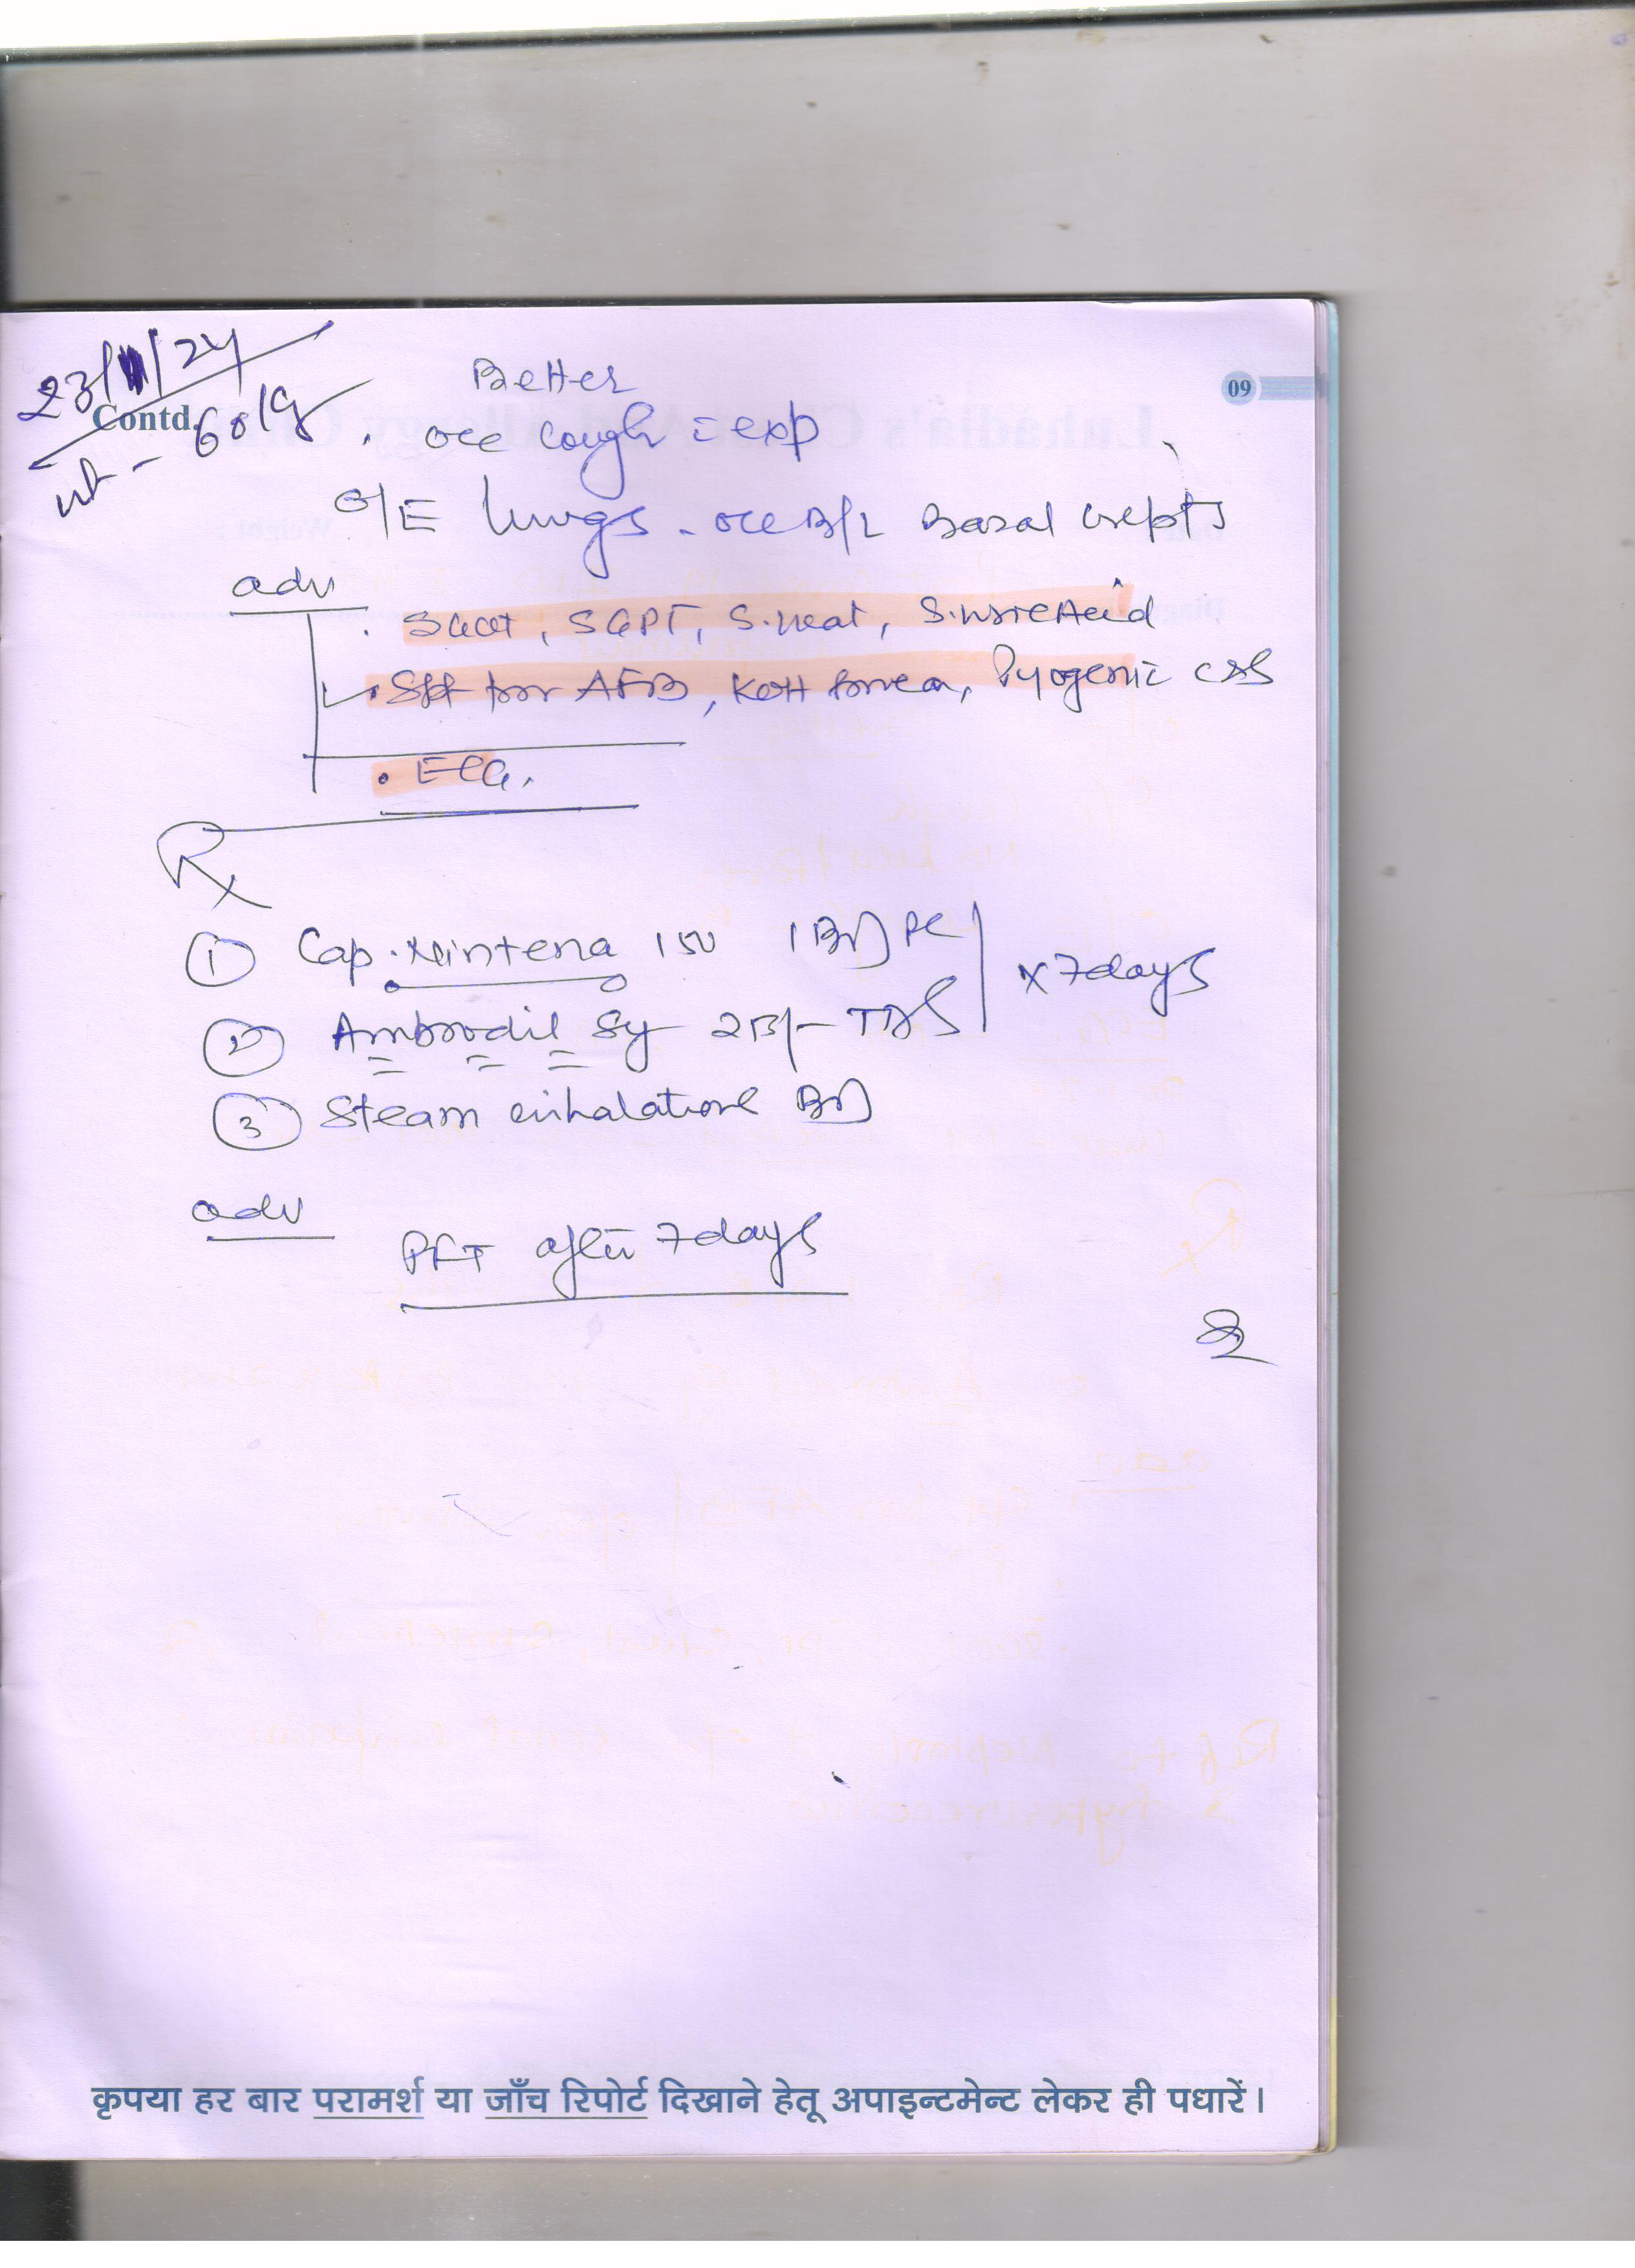 23/11/24
Contd.
09
wt - 60 kg
Better
. occ cough c̄ exp
O/E lungs - occ B/L Basal crepts
adv
. SGOT, SGPT, S.creat, S.uric Acid
. for AFB, KOH, Pyogenic C&S
. ECG.
Rx
① Cap. Nintena 150 1 BD PC
x 7 days
② Ambrodil Sy 2 TDS
③ Steam inhalation BD
adv
PFT after 7 days
कृपया हर बार परामर्श या जाँच रिपोर्ट दिखाने हेतू अपाइन्टमेन्ट लेकर ही पधारें।